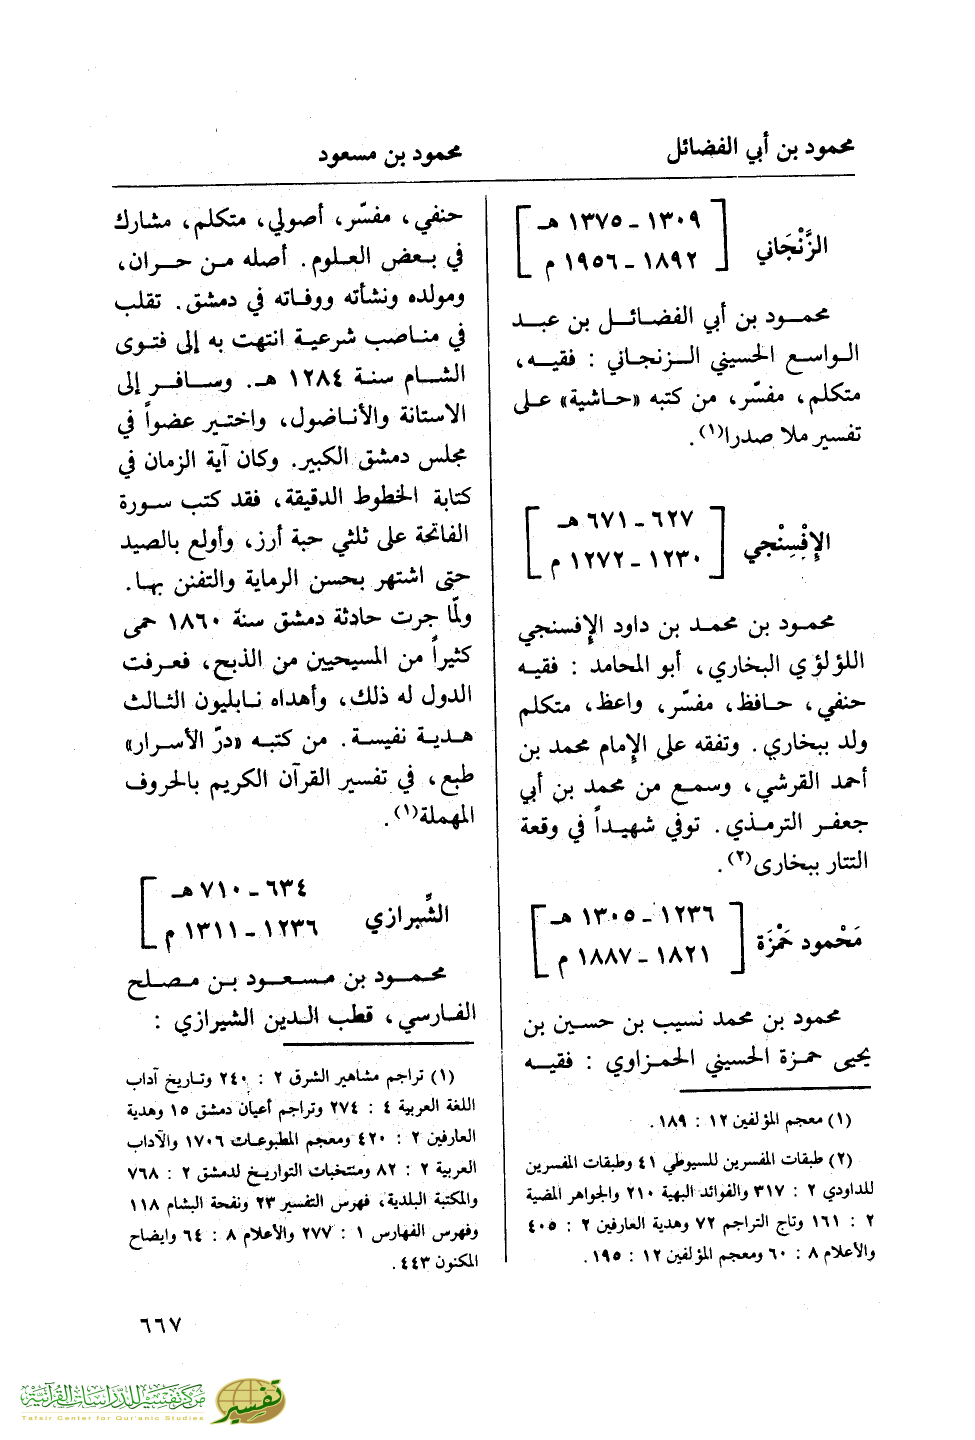 محمود بن أبي الفضائل
محمود بن مسعود
الزَّنْجَاني
١٣٠٩ ـ ١٣٧٥ هـ
١٨٩٢ ـ ١٩٥٦ م
محمـود بن أبي الفضائـل بن عبـد
الـواسع الحسيني الـزنجـاني : فقيـه،
متكلم، مفسّر، من كتبه «حـاشية» عـلى
تفسير ملا صدرا(١).
الإِفْسِنْجي
٦٢٧ ـ ٦٧١ هـ
١٢٣٠ ـ ١٢٧٢ م
محمـود بن محمـد بن داود الإفسنجي
اللؤلؤي البخاري، أبو المحامد : فقيـه
حنفي، حـافظ، مفسّر، واعظ، متكلم
ولد ببخاري. وتفقه على الإمام محمد بن
أحمد القرشي، وسمـع من محمد بن أبي
جعفـر الترمذي. توفي شهيـداً في وقعة
التتار ببخارى(٢).
مَحْمود حَمْزَة
١٢٣٦ ـ ١٣٠٥ هـ
١٨٢١ ـ ١٨٨٧ م
محمود بن محمد نسيب بن حسين بن
يحيى حمـزة الحسيني الحمـزاوي : فقيـه
(١) معجم المؤلفين ١٢ : ١٨٩.
(٢) طبقات المفسرين للسيوطي ٤١ وطبقات المفسرين
للداودي ٢ : ٣١٧ والفوائد البهية ٢١٠ والجواهر المضية
٢ : ١٦١ وتاج التراجم ٧٢ وهدية العارفين ٢ : ٤٠٥
والأعلام ٨ : ٦٠ ومعجم المؤلفين ١٢ : ١٩٥.
حنفي، مفسّر، أصولي، متكلم، مشارك
في بـعض العلوم. أصله مـن حـران،
ومولده ونشأته ووفـاته في دمشق. تقلب
في مناصب شرعيـة انتهت به إلى فتـوى
الشـام سنـة ١٢٨٤ هـ. وسـافـر إلى
الاستانة والأناضول، واختير عضواً في
مجلس دمشق الكبير. وكان آية الزمان في
كتابة الخطوط الدقيقة، فقد كتب سورة
الفاتحة على ثلثي حبة أرز، وأولع بالصيد
حتى اشتهر بحسن الرماية والتفنن بهـا.
ولمّا جرت حادثة دمشق سنة ١٨٦٠ حمى
كثيراً من المسيحيين من الذبح، فعرفت
الدول له ذلك، وأهداه نـابليون الثالث
هـديـة نفيسـة. من كتبـه «درّ الأسـرار»
طبع، في تفسير القرآن الكريم بالحروف
المهملة(١).
الشِّيرازي
٦٣٤ ـ ٧١٠ هـ
١٢٣٦ ـ ١٣١١ م
محمـود بن مسـعـود بـن مـصلح
الفـارسي، قطب الـدين الشيرازي :
(١) تراجم مشاهير الشرق ٢ : ٢٤٠ وتـاريخ آداب
اللغة العربية ٤ : ٢٧٤ وتراجم أعيان دمشق ١٥ وهدية
العارفين ٢ : ٤٢٠ ومعجم المطبوعات ١٧٠٦ والآداب
العربية ٢ : ٨٢ ومنتخبات التواريخ لدمشق ٢ : ٧٦٨
والمكتبة البلدية، فهرس التفسير ٢٣ ونفحة البشام ١١٨
وفهرس الفهارس ١ : ٢٧٧ والأعلام ٨ : ٦٤ وايضاح
المكنون ٤٤٣.
٦٦٧
مركز تفسير للدراسات القرآنية
Tafsir Center for Qur'anic Studies
تفسير